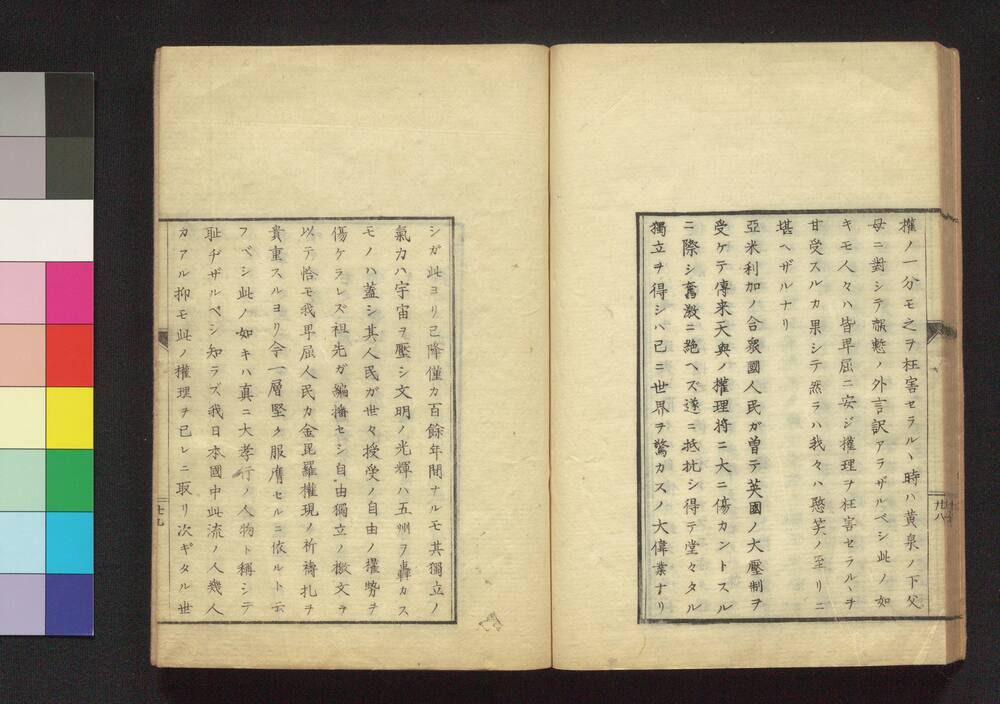 權ノ一分モ之ヲ枉害セラルヽ時ハ黄泉ノ下父
母ニ對シテ慙ノ外言訳アラザルベシ此ノ如
キモ人々ハ皆卑屈ニ安ジ權理ヲ枉害セラルヽヲ
甘受スルカ果シテ然ラハ我々ハ愍笑ノ至リニ
堪ヘザルナリ
亞米利加ノ合衆國人民ガ曽テ英國ノ大壓制ヲ
受ケテ傳来天與ノ權理將ニ大ニ傷カントスル
ニ際シ奮激ニ絶ヘズ遂ニ抵抗シ得テ堂々タル
獨立ヲ得シハ已ニ世界ヲ驚カスノ大偉業ナリ
廿八
シガ此ヨリ已降僅カ百餘年間ナルモ其獨立ノ
氣力ハ宇宙ヲ壓シ文明ノ光輝ハ五州ヲ轟カス
モノハ蓋シ其人民ガ世々授受ノ自由ノ權勢ヲ
傷ケラレズ祖先ガ編播セシ自由獨立ノ檄文ヲ
以テ恰モ我卑屈人民カ金毘羅權現ノ祈祷札ヲ
貴重スルヨリ今一層堅ク服膺セルニ依ルト云
フベシ此ノ如キハ真ニ大孝行ノ人物ト稱シテ
恥ヂザルベシ知ラズ我日本國中此流ノ人幾人
カアル抑モ此ノ權理ヲ已レニ取リ次ギタル世
廿九